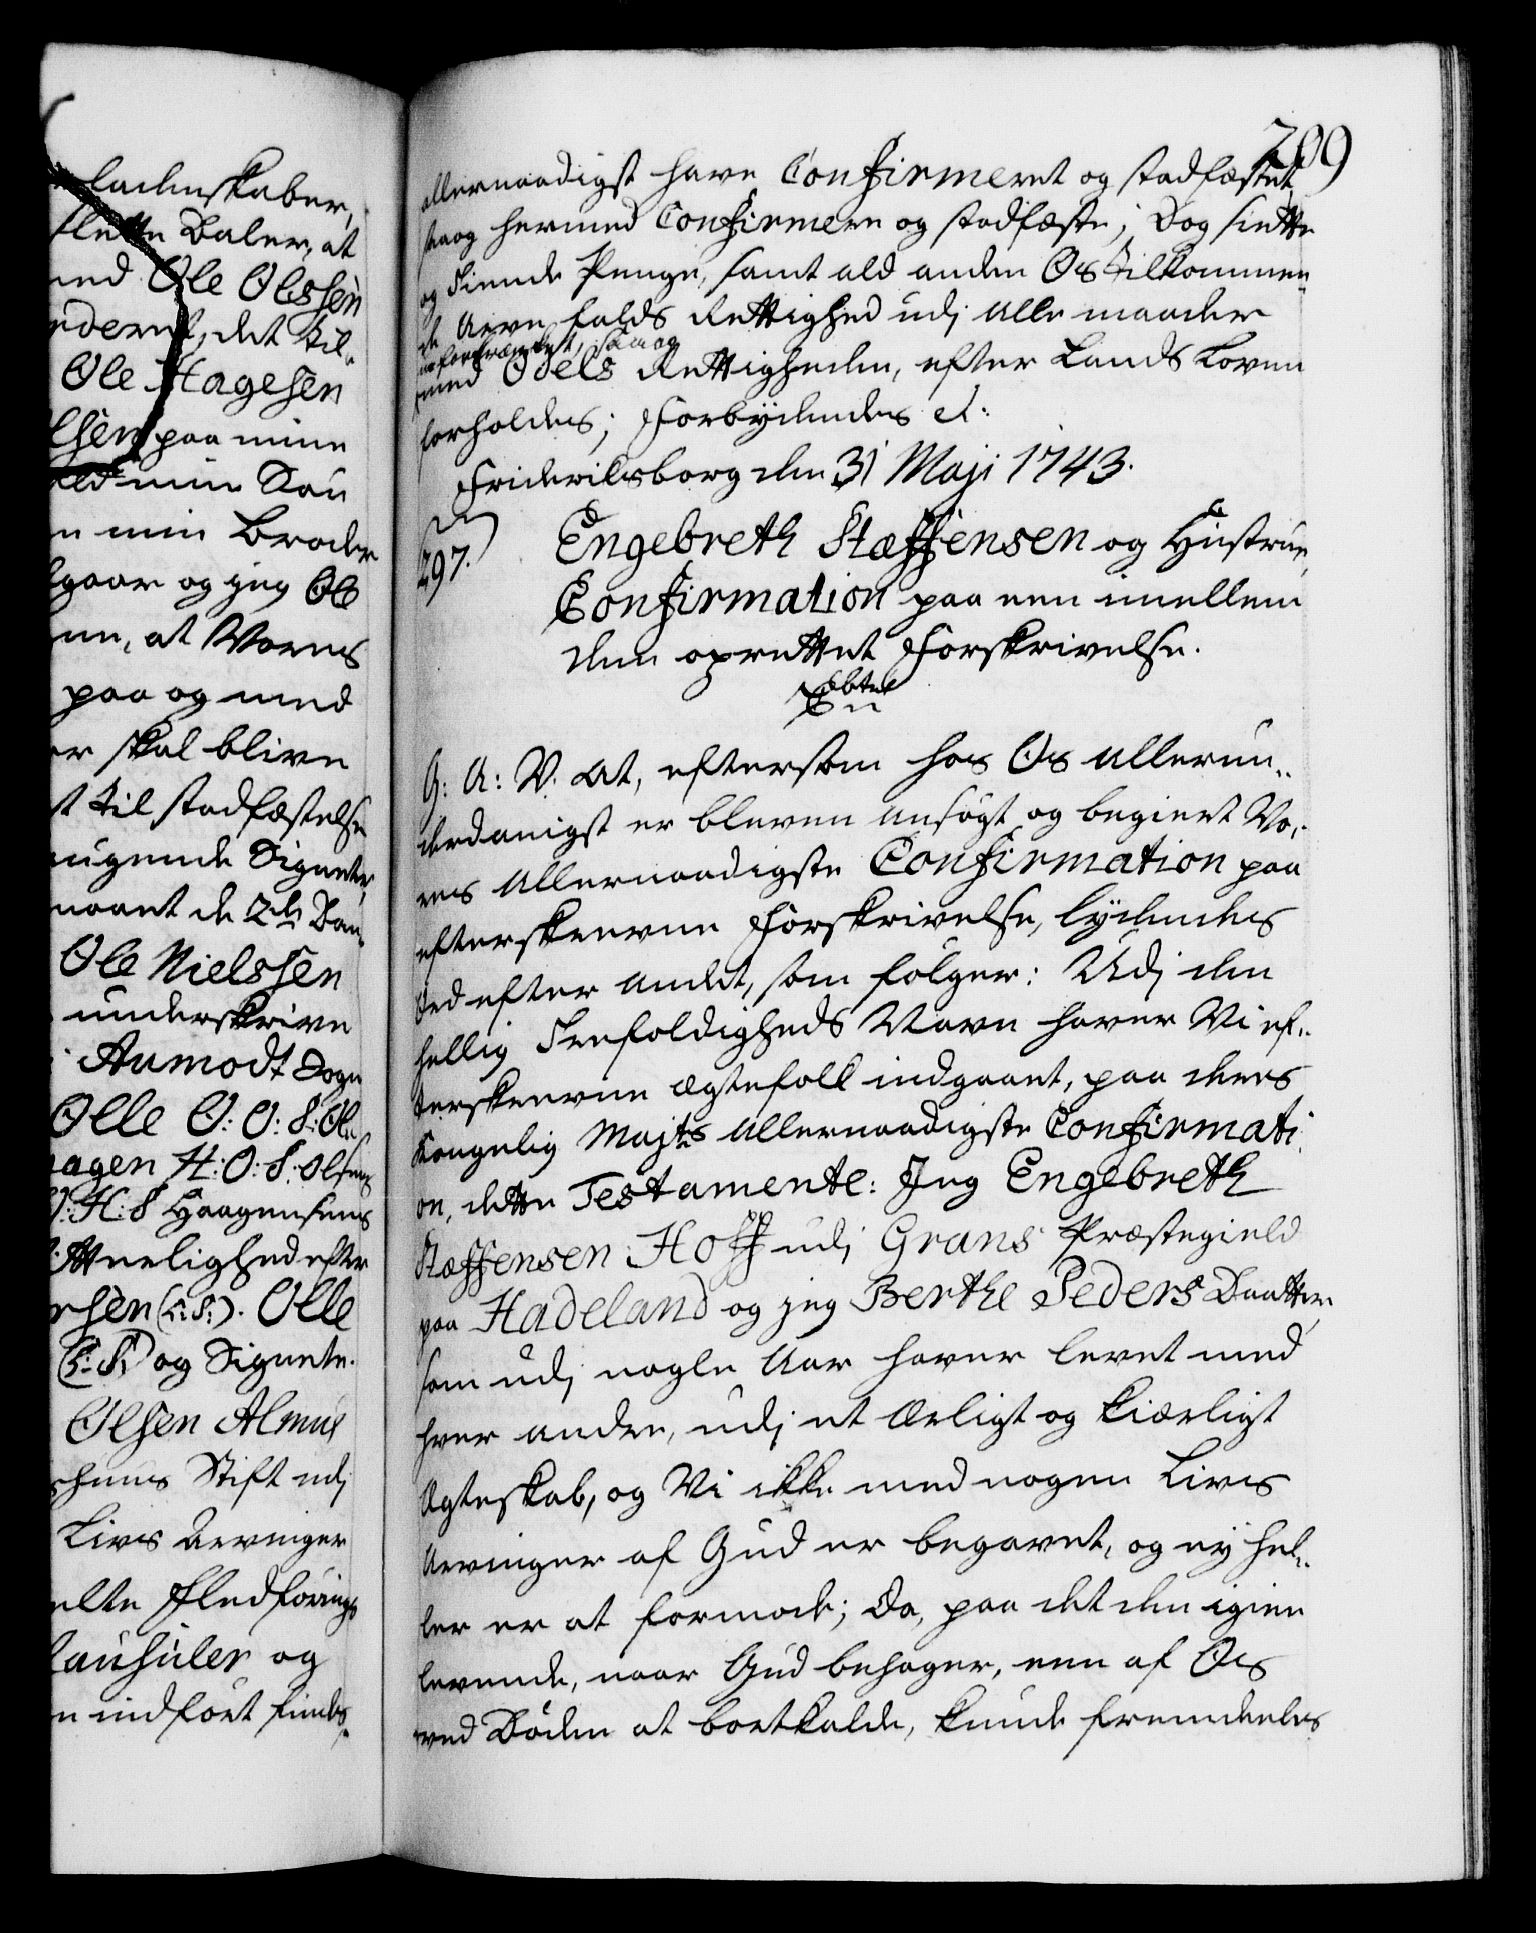 ladenskaber,
slette Baler, at
med Ole Olssen
det til-
Ole Hagesen
lsen paa mine
min Søn
min Broder
gaar og jeg Ole
at Vores
paa og med
er skal blive
til stadfæstelse
Signeter,
Ole Nielssen
underskrive
Aamodt Sogn
Olle O: O: S: Ol
H: O: S: Olsens
H: S Haagensens
efter
rsen (L: S:). Olle
(L: S:) og Signete.
Olsen
huus Stift udj
Livs Arvinger
elte Fledførings
lausuler og
n indført findes
209
allernaadigst have Confirmeret og stadfæstet,
saa og hermed Confirmere og stadfæste; Dog siette
og Tiende Penge, samt ald anden Os tilkommen-
de Arve falds Rettighed udj alle maader
uforkrænket, saa og
med Odels Rettigheden, efter Lands Loven
forholdes; Forbydendes &:
Friderichsborg den 31 Maji 1743.
297.
Engebreth Stæffensen og Hustrue,
Confirmation paa een imellem
dem oprettet Forskrivelse.
G: A: V. At, eftersom hos Os allerun-
derdanigst er bleven ansøgt og begiert Vo-
res allernaadigste Confirmation paa
efterskrevne Forskrivelse, lydendes
Ord efter andet, som følger: Udj den
hellig Trefoldigheds Navn haver Vi ef-
terskrevne Ægtefolk indgaaet, paa deres
Kongelig Majts allernaadigste Confirmati-
on, dette Testamente: Jeg Engebreth
Stæffensen Hoff udj Grans Præstegield
paa Hadeland og jeg Berthe Peders Daatter,
som udj nogle Aar haver levet med
hver andre, udj et Ærligt og kiærligt
Ægteskab, og Vi ikke med nogen Livs
Arvinger af Gud er begavet, og ey hel-
ler er at formode; Da, paa det den igien
levende, naar Gud behager, een af Os
ved Døden at bortkalde, kunde fremdeeles